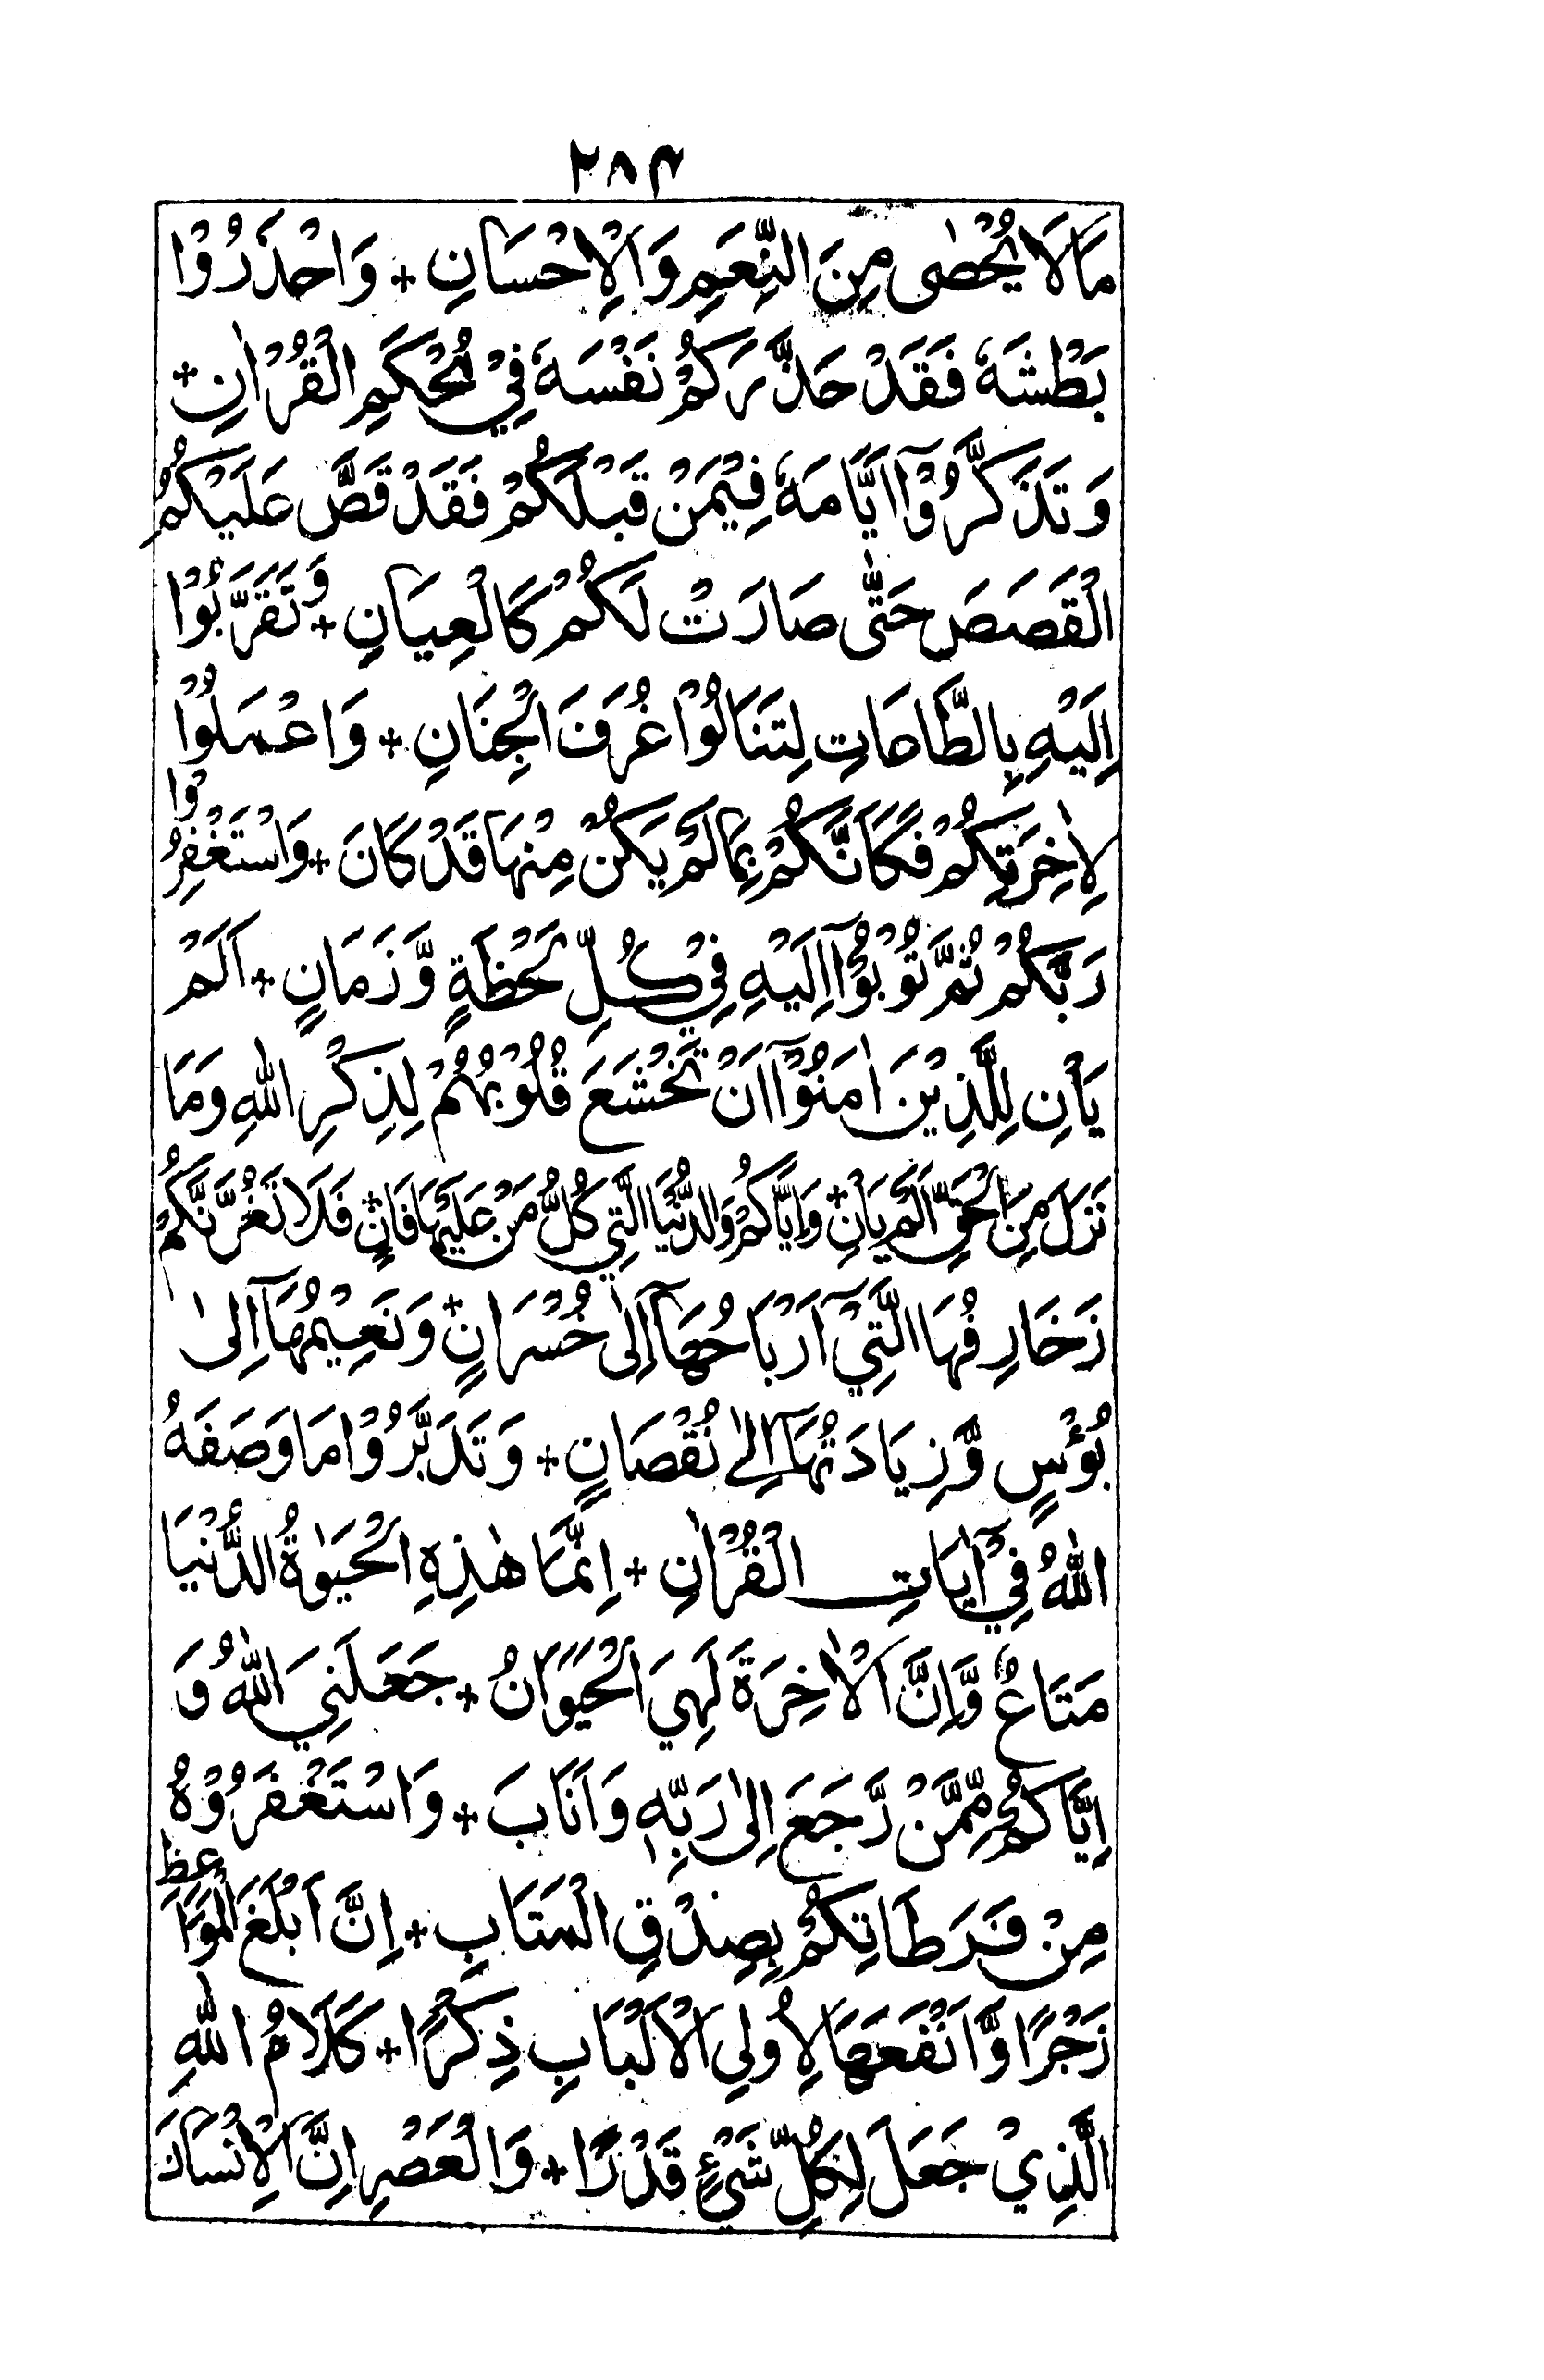 ۲۸۴
مَا لَا يُحْصٰى مِنَ النِّعَمِ وَالْاِحْسَانِ + وَاحْذَرُوْا
بَطْشَهٗ فَقَدْ حَذَّرَكُمْ نَفْسَهٗ فِيْ مُحْكَمِ الْقُرْاٰنِ +
وَتَذَكَّرُوْآ اَيَّامَهٗ فِيْمَنْ قَبْلَكُمْ فَقَدْ قَصَّ عَلَيْكُمُ
الْقَصَصَ حَتّٰى صَارَتْ لَكُمْ كَالْعِيَانِ + وَتَقَرَّبُوْا
اِلَيْهِ بِالطَّاعَاتِ لِتَنَالُوْا غُرَفَ الْجِنَانِ + وَاعْمَلُوْا
لِاٰخِرَتِكُمْ فَكَاَنَّكُمْ بِمَا لَمْ يَكُنْ مِنْهَا قَدْ كَانَ + وَاسْتَغْفِرُوْا
رَبَّكُمْ ثُمَّ تُوْبُوْآ اِلَيْهِ فِيْ كُلِّ لَحْظَةٍ وَّزَمَانٍ + اَلَمْ
يَأْنِ لِلَّذِيْنَ اٰمَنُوْآ اَنْ تَخْشَعَ قُلُوْبُهُمْ لِذِكْرِ اللهِ وَمَا
نَزَلَ مِنَ الْحَقِّ اَلَمْ يَاْنِ + وَاِيَّاكُمْ وَالدُّنْيَا الَّتِيْ كُلُّ مَنْ عَلَيْهَا فَانٍ + فَلَا تَغُرَّنَّكُمْ
زَخَارِفُهَا الَّتِيْ آرْبَاحُهَآ اِلٰى خُسْرَانٍ + وَنَعِيْمُهَآ اِلٰى
بُؤْسٍ وَّزِيَادَتُهَآ اِلٰى نُقْصَانٍ + وَتَدَبَّرُوْا مَا وَصَفَهُ
اللهُ فِيْ آيَاتِ الْقُرْاٰنِ + اِنَّمَا هٰذِهِ الْحَيٰوةُ الدُّنْيَا
مَتَاعٌ وَّاِنَّ الْاٰخِرَةَ لَهِيَ الْحَيَوَانُ + جَعَلَنِيَ اللهُ وَ
اِيَّاكُمْ مِّمَّنْ رَّجَعَ اِلٰى رَبِّهٖ وَاَنَابَ + وَاسْتَغْفَرُوْهُ
مِنْ فَرَطَاتِكُمْ بِصِدْقِ الْمَتَابِ + اِنَّ اَبْلَغَ الْمَوَاعِظِ
زَجْرًا وَّاَنْفَعَهَا لِاُولِى الْاَلْبَابِ ذِكْرًا + كَلَامُ اللهِ
الَّذِيْ جَعَلَ لِكُلِّ شَيْءٍ قَدْرًا + وَالْعَصْرِ اِنَّ الْاِنْسَانَ